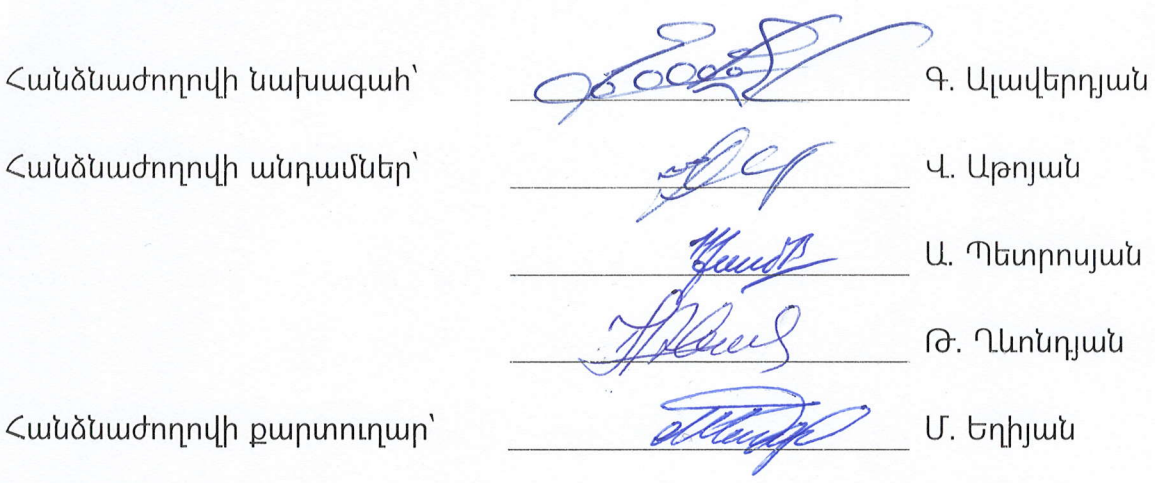 Հանձնաժողովի նախագահ՝ Գ. Ալավերդյան
Հանձնաժողովի անդամներ՝ Վ. Աթոյան
Ա. Պետրոսյան
Թ. Ղևոնդյան
Հանձնաժողովի քարտուղար՝ Մ. Եղիյան